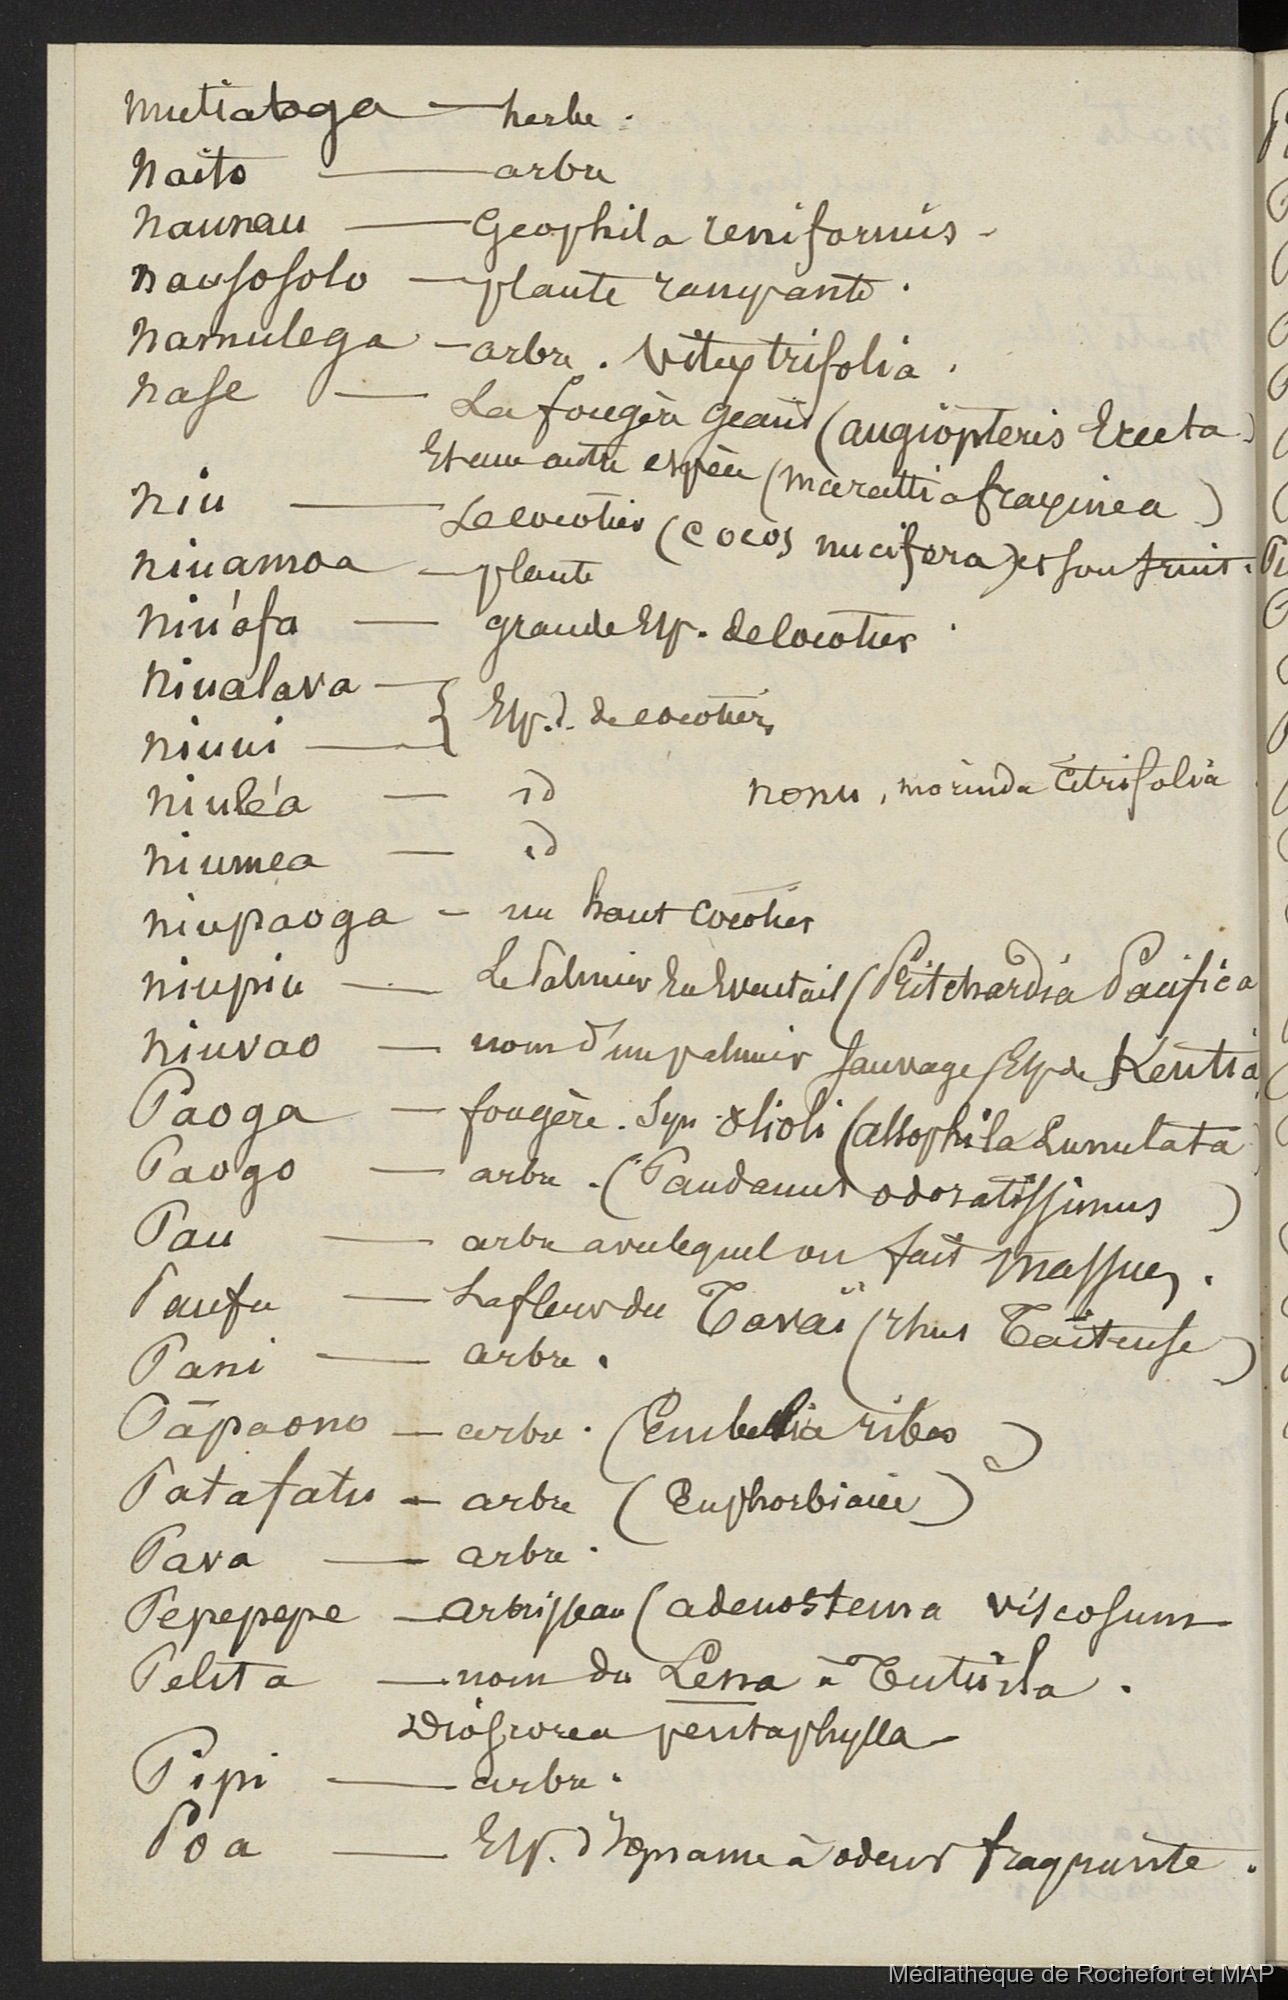 mutiatoga — herbe.
Naito — arbre
Naunau — Geophila reniformis -
Nausosolo — plante rampante.
Namulega — arbre. Vitex trifolia.
Nase — La fougère géante (angiopteris Erecta)
Et une autre espèce (marattia fraxinea)
Niu — Le cocotier (Cocos nucifera) et son fruit.
Niuamoa — plante
Niu'afa — grande Esp. de cocotier.
Niualava — { Esp.s de cocotiers
Niuui —
Niuléa — id
nonu, morinda Citrifolia
Niumea — id
Niupaoga — un haut Cocotier
Niupiu — Le Palmier En Eventail (Pritchardia Pacifica
Niuvao — nom d'un palmier sauvage Esp de Kentia
Paoga — fougère. Syn. Olioli (alsophila Lunulata)
Paogo — arbre. (Pandanus odoratissimus)
Pau — arbre avec lequel on fait massues.
Paufu — La fleur du Tavaï (rhus Taitense)
Pani — arbre.
Pāpaono — arbre. (Embelia ribes)
Patafatu — arbre (Euphorbiacée)
Pava — arbre.
Pepepepe — arbrisseau (adenostema viscosum
Pelita — nom du Lena à Tutuila.
Dioscorea pentaphylla -
Pipi — arbre.
Poa — Esp. d'Igname à odeur fragrante.
Médiathèque de Rochefort et MAP